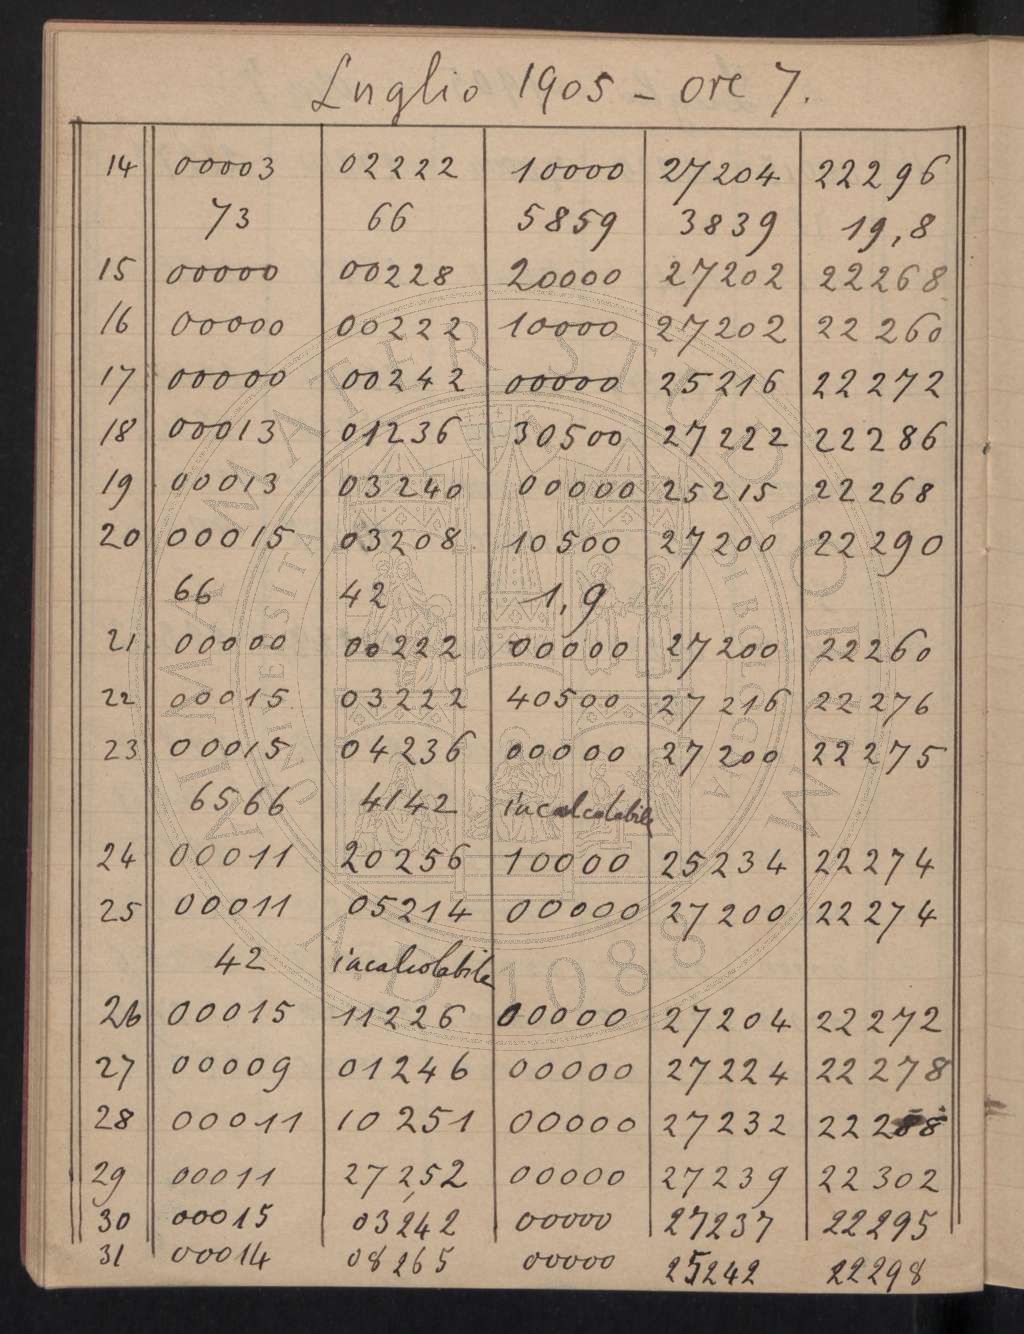 Luglio 1905 - ore 7.
14 00003 02222 10000 27204 22296
73 66 5859 3839 19,8
15 00000 00228 20000 27202 22268
16 00000 00222 10000 27202 22260
17 00000 00242 00000 25216 22272
18 00013 01236 30500 27222 22286
19 00013 03240 00000 25215 22268
20 00015 03208 10500 27200 22290
66 42 1,9
21 00000 00222 00000 27200 22260
22 00015 03222 40500 27216 22276
23 00015 04236 00000 27200 22275
6566 4142 incalcolabile
24 00011 20256 10000 25234 22274
25 00011 05214 00000 27200 22274
42 incalcolabile
26 00015 11226 00000 27204 22272
27 00009 01246 00000 27224 22278
28 00011 10251 00000 27232 22288
29 00011 27252 00000 27239 22302
30 00015 03242 00000 27237 22295
31 00014 08265 00000 25242 22298
ALMA MATER STUDIORUM
A.D. 1088